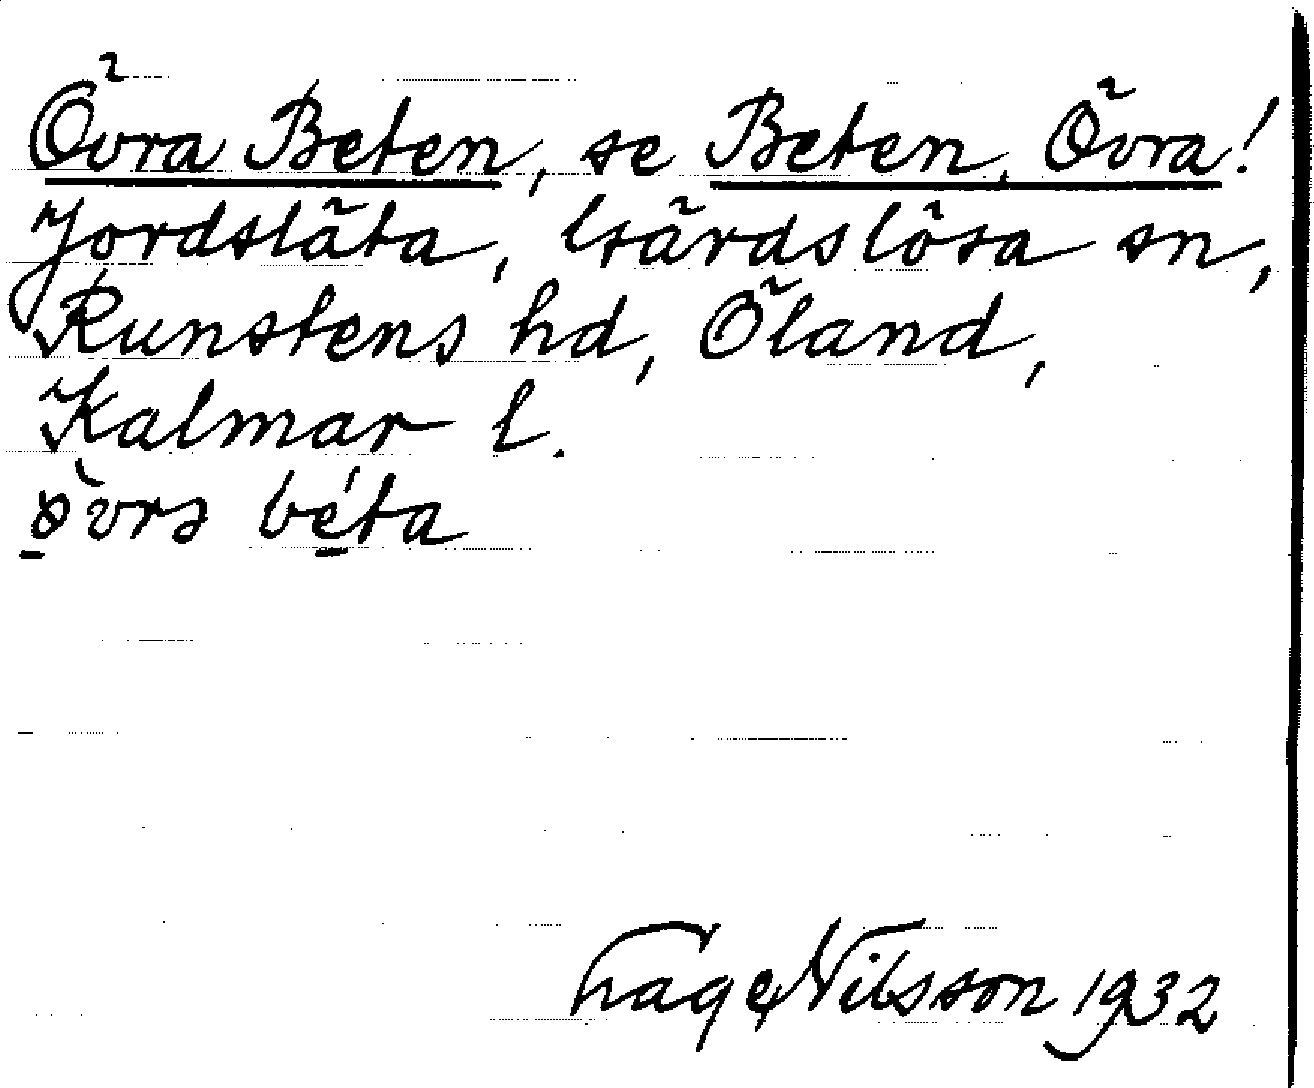 Övra Beten, se Beten, Övra!
Jordsläta, Gärdslösa sn,
Runstens hd, Öland,
Kalmar l.
ö̀vrə béta
Hage Nilsson 1932